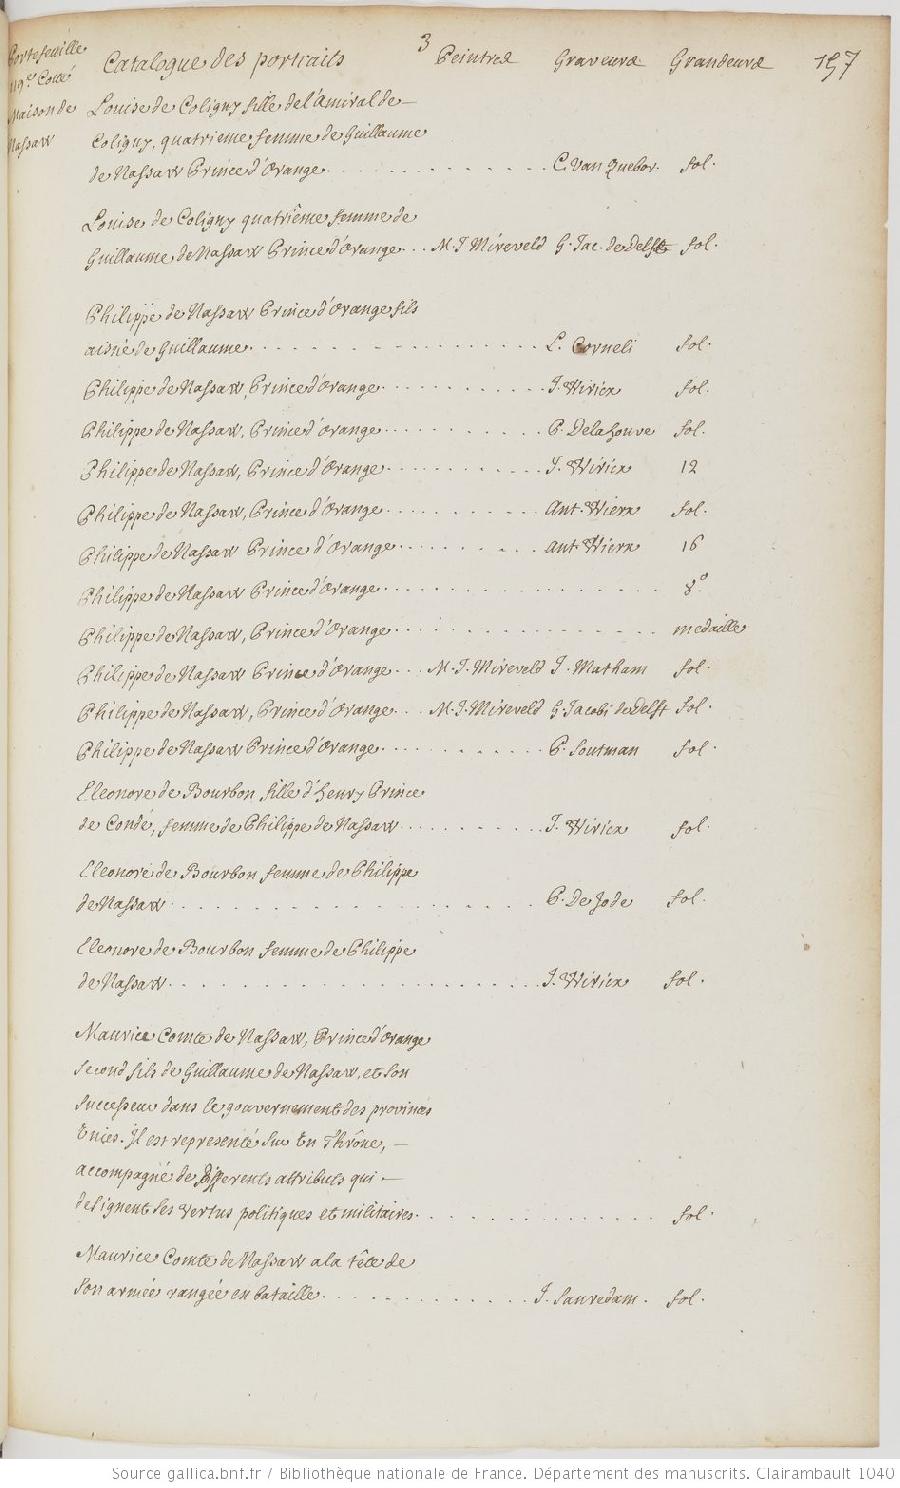 3
Portefeuille Catalogue des portraits Peintres Graveurs Grandeurs 157
119e Cotté
Maison de Louise de Coligny fille de l'Amiral de
Nassaw Coligny, quatrieme femme de Guillaume
de Nassaw Prince d'Orange . . . . C. Van Quebor. fol.
Louise de Coligny quatriême femme de
Guillaume de Nassaw Prince d'Orange . . M. J. Mireveld G. Jac. de Delft fol.
Philippe de Nassaw Prince d'Orange fils
aisné de Guillaume . . . . L. Corneli fol.
Philippe de Nassaw, Prince d'Orange . . . . J. Wirica fol.
Philippe de Nassaw, Prince d'Orange . . . . P. Delahouve fol.
Philippe de Nassaw, Prince d'Orange . . . . J. Wirica 12
Philippe de Nassaw, Prince d'Orange . . . . Ant. Wierx fol.
Philippe de Nassaw Prince d'Orange . . . . Ant. Wierx 16
Philippe de Nassaw Prince d'Orange . . . . 8º
Philippe de Nassaw, Prince d'Orange . . . . medaille
Philippe de Nassaw Prince d'Orange . . . M. J. Mireveld J. Matham fol.
Philippe de Nassaw, Prince d'Orange . . . M. J. Mireveld G. Jacobi de Delft fol.
Philippe de Nassaw Prince d'Orange . . . . P. Soutman fol.
Eleonore de Bourbon, fille d'henry Prince
de Condé, femme de Philippe de Nassaw . . . . J. Wirica fol.
Eleonore de Bourbon femme de Philippe
de Nassaw . . . . P. De Jode fol.
Eleonore de Bourbon femme de Philippe
de Nassaw . . . . J. Wirica fol.
Maurice Comte de Nassaw, Prince d'Orange
second fils de Guillaume de Nassaw, et son
successeur dans le gouvernement des provinces
Unies. Il est representé sur un Thrône, —
accompagné de differents attributs qui —
designent ses vertus politiques et militaires . . . . fol.
Maurice Comte de Nassaw a la tête de
son armée rangée en bataille . . . . J. Sanredam. fol.
Source gallica.bnf.fr / Bibliothèque nationale de France. Département des manuscrits. Clairambault 1040